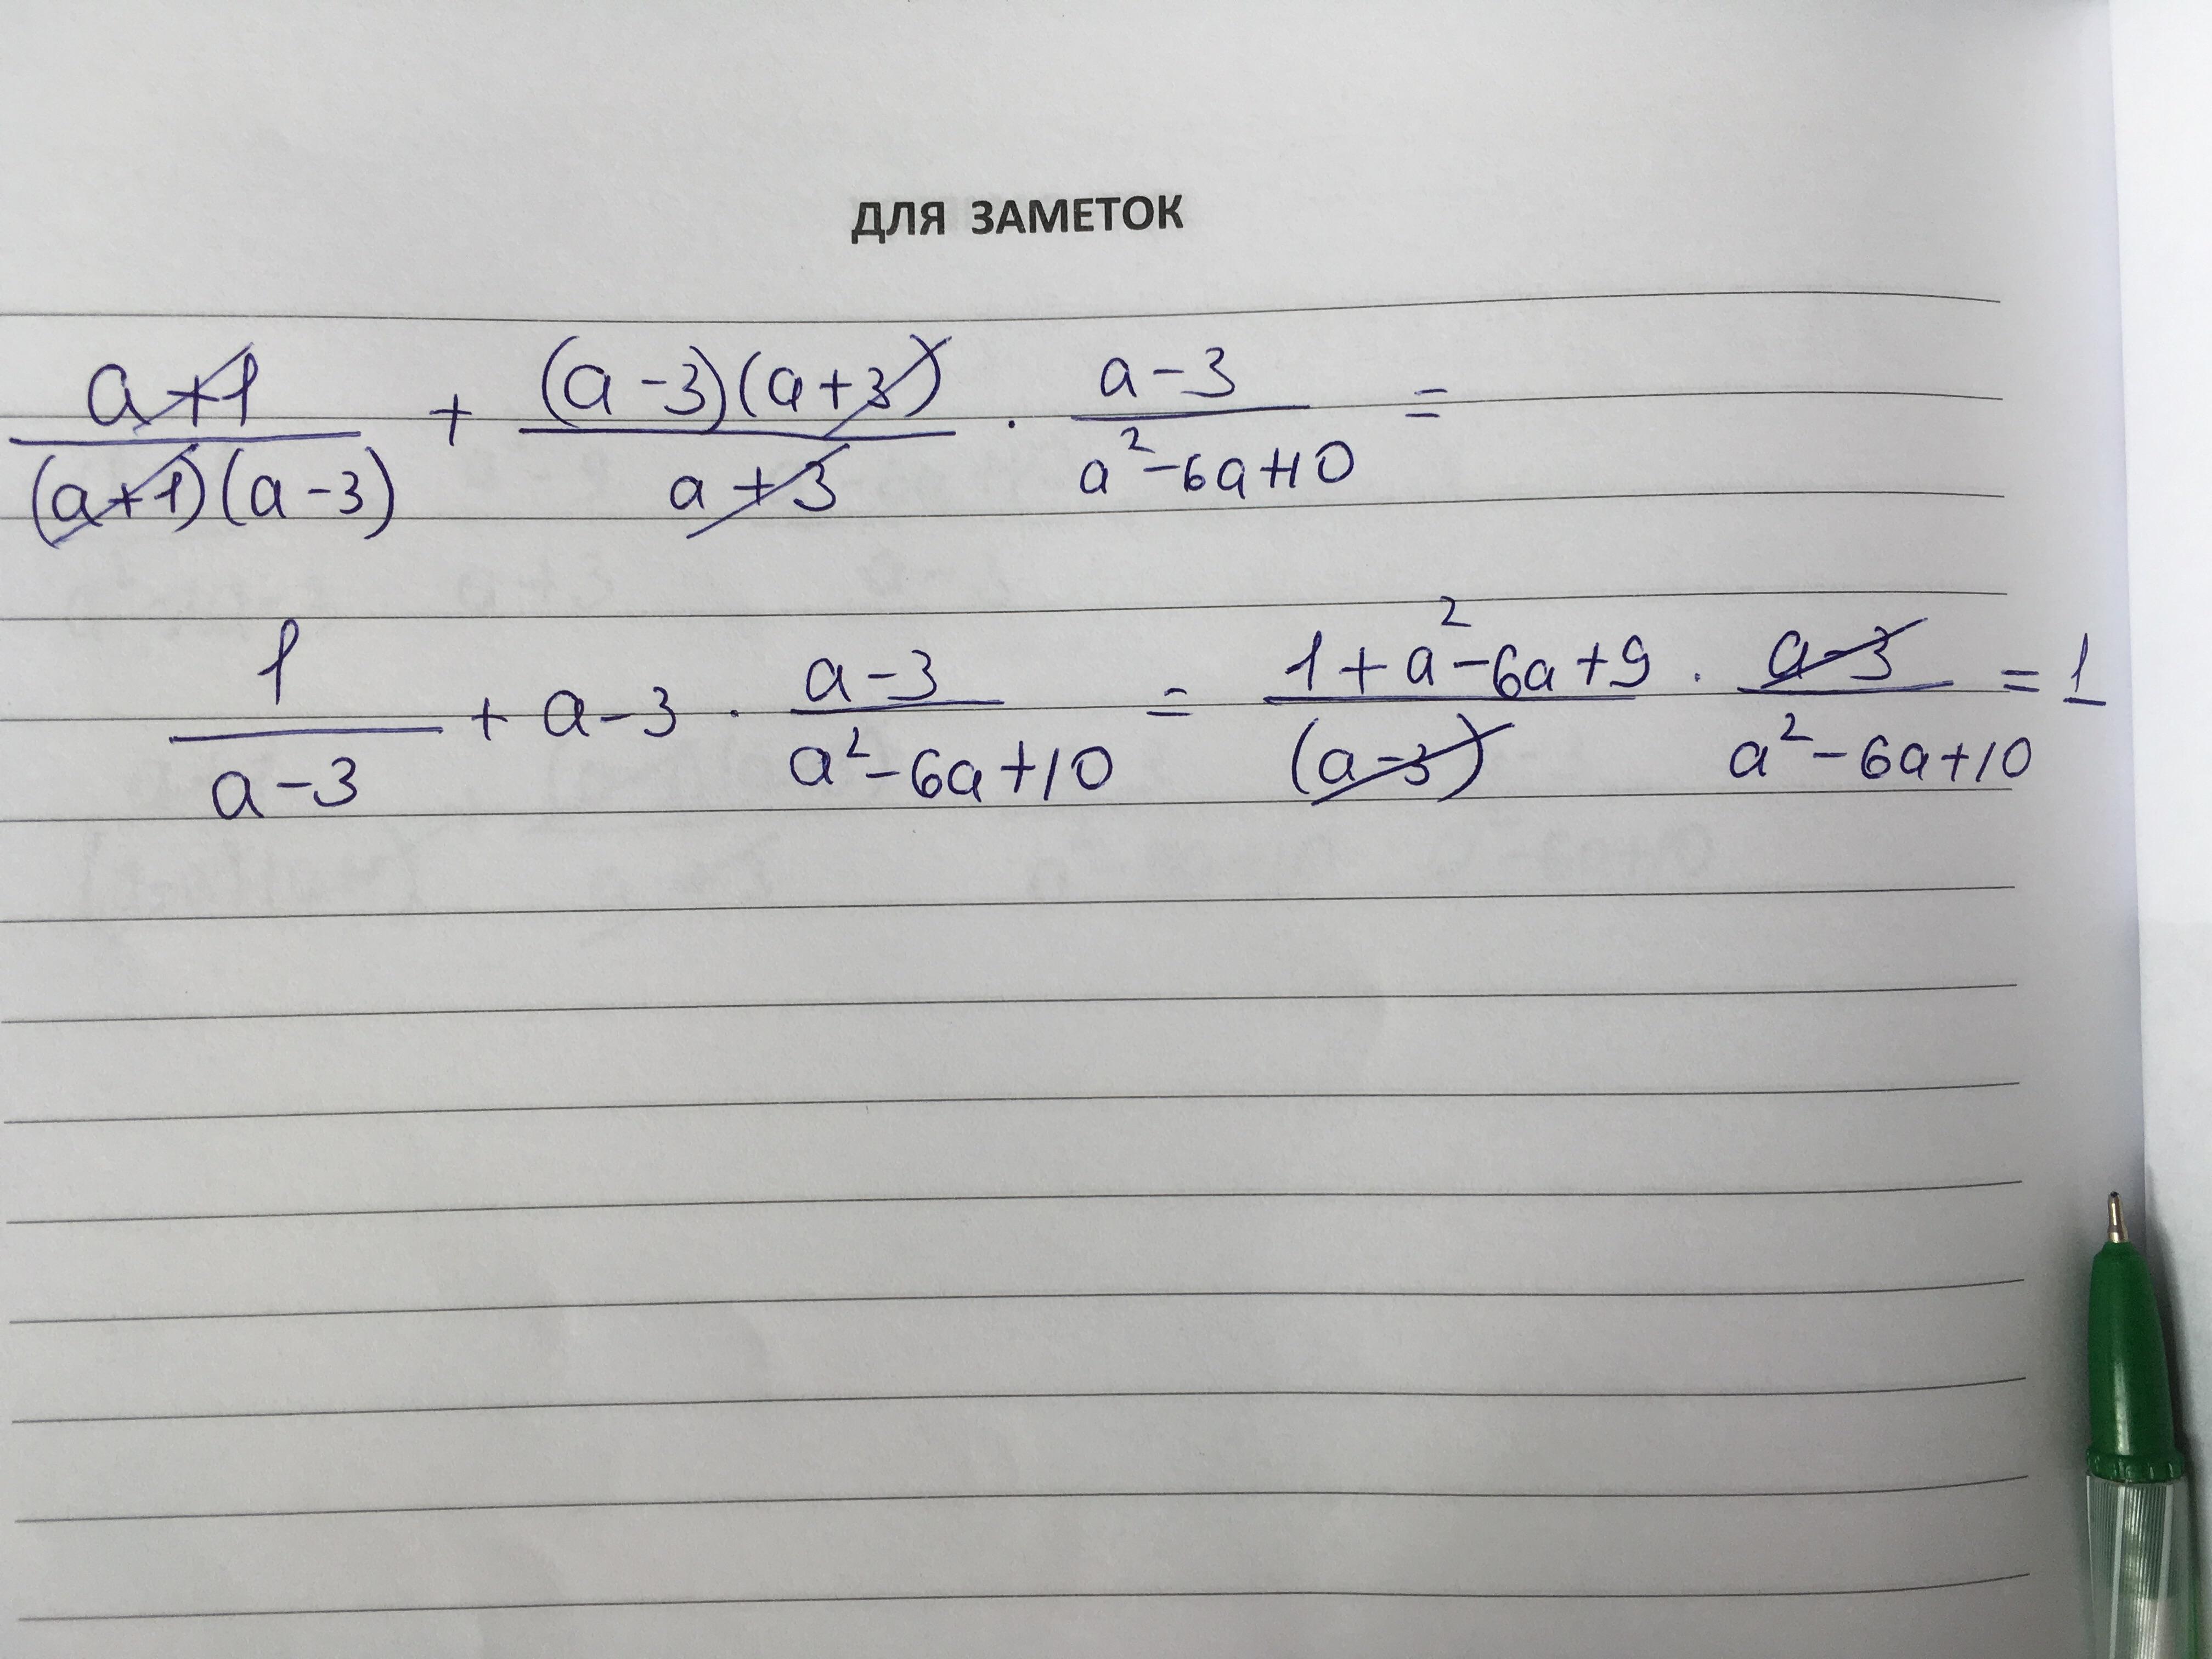 ДЛЯ ЗАМЕТОК
a+1 / (a+1)(a-3) + (a-3)(a+3) / a+3 · a-3 / a²-6a+10 =
1 / a-3 + a-3 · a-3 / a²-6a+10 = 1+a²-6a+9 / (a-3) · a-3 / a²-6a+10 = 1